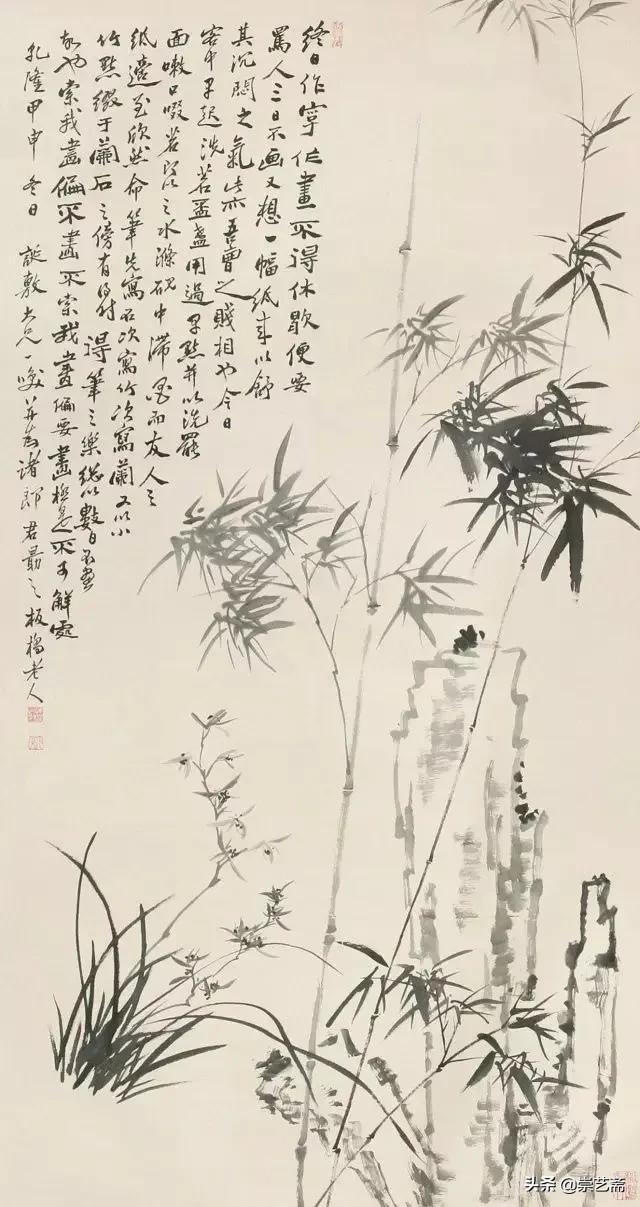 終日作字作畫不得休歇便要
罵人三日不画又想一幅紙來以舒
其沉悶之氣此亦吾曹之賤相也今日
客中早起洗茗盂盞用過早點并以洗罷
面嗽口啜茗之水滌硯中滯墨而友人之
紙適至欣然命筆先寫石次寫竹次寫蘭又以小
竹點綴于蘭石之傍有得時得筆之樂總以數日不画
故也索我畫偏不畫不索我畫偏要畫極是不可解處
乾隆甲申冬日 誕敷大兄一咲并為諸郎君勗之板橋老人
头条 @崇艺斋